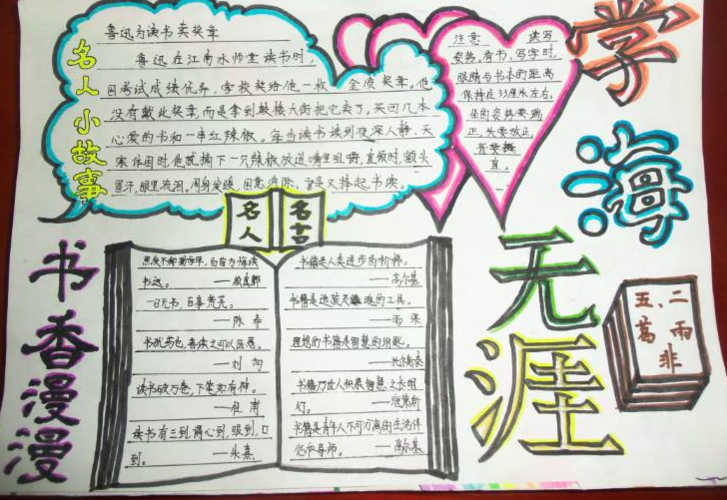 学海
无涯
书香漫漫
名人小故事
鲁迅为读书卖奖章
鲁迅在江南水师堂读书时,
因考试成绩优异,学校奖给他一枚金质奖章。他
没有戴此奖章,而是拿到鼓楼大街把它卖了,买回几本
心爱的书和一串红辣椒。每当读书读到夜深人静、天
寒体困时,他就摘下一只辣椒放进嘴里咀嚼,直辣时,额头
冒汗,眼里流泪。周身发暖,困意消除,于是又捧起书读。
注意 读写
姿势,看书、写字时,
眼睛与书本的距离
保持在33厘米左右,
坐的姿势要端
正,头要放正
直。
名人 名言
黑发不知勤学早,白首方悔读
书迟。
——颜真卿
一日无书,百事荒芜。
——陈寿
书犹药也,善读之可以医愚。
——刘向
读书破万卷,下笔如有神。
——杜甫
读书有三到,谓心到,眼到,口
到。 ——朱熹
书籍是人类进步的阶梯。
——高尔基
书籍是造就灵魂的工具。
——雨果
理想的书籍是智慧的钥匙。
——托尔斯泰
灯。
书籍是青年人不可分离的生活伴
侣和导师。 ——高尔基
五、二
葛雨
非